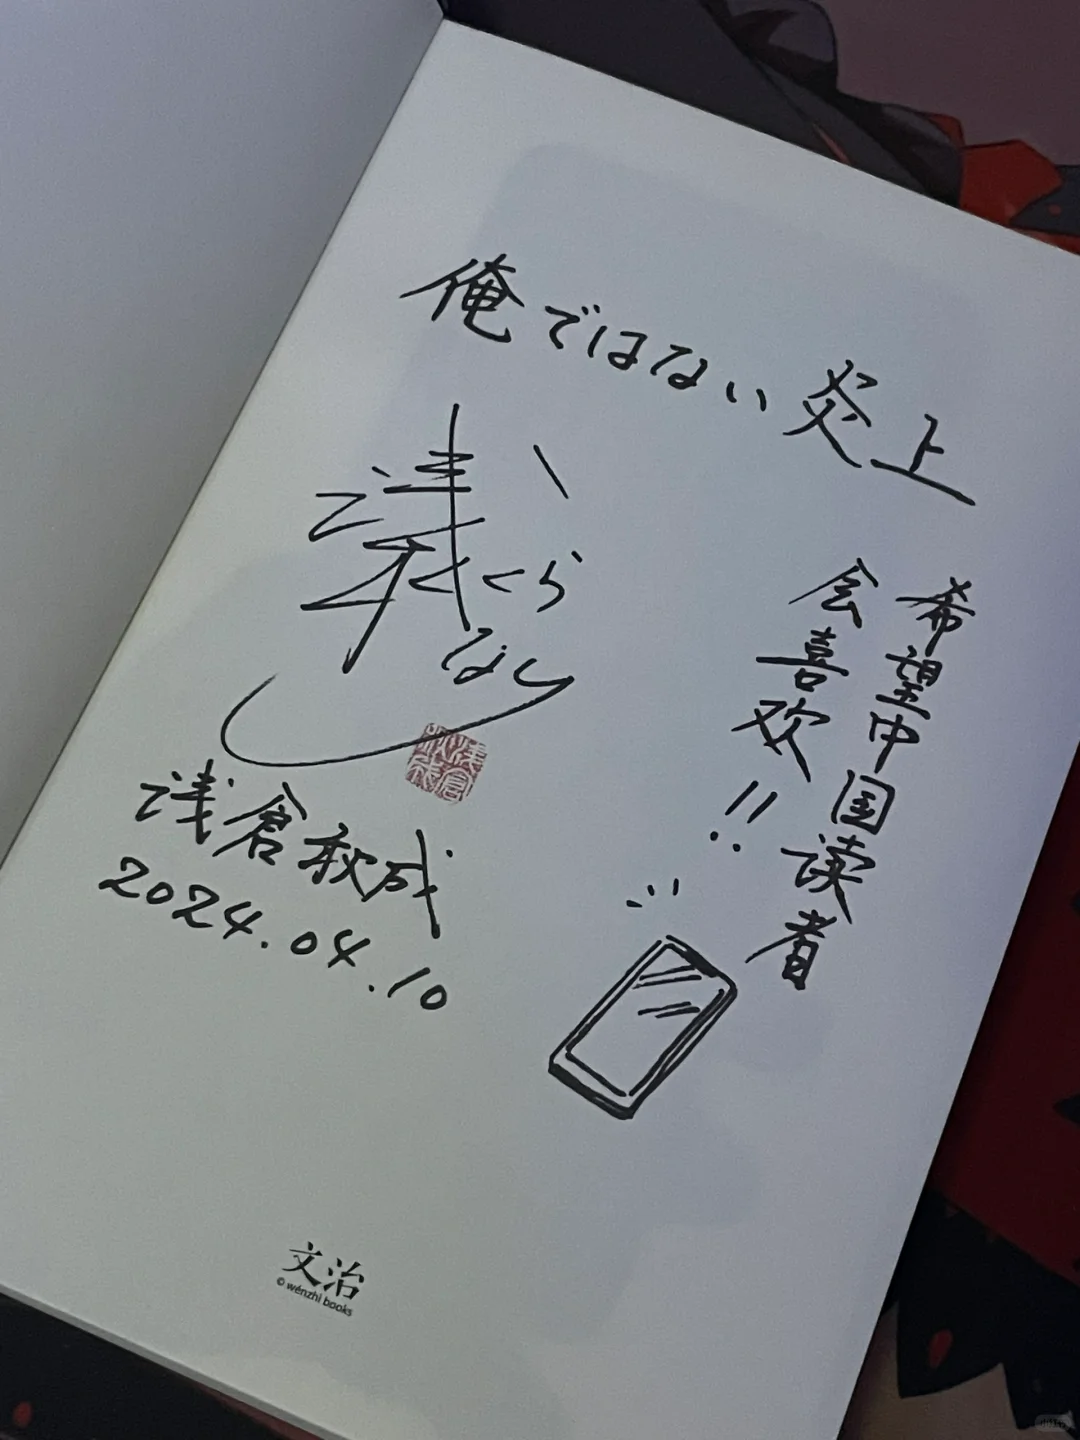 俺ではない炎上
希望中国读者
会喜欢!!
浅倉秋成
2024.04.10
浅倉
秋成
文治
© wénzhì books